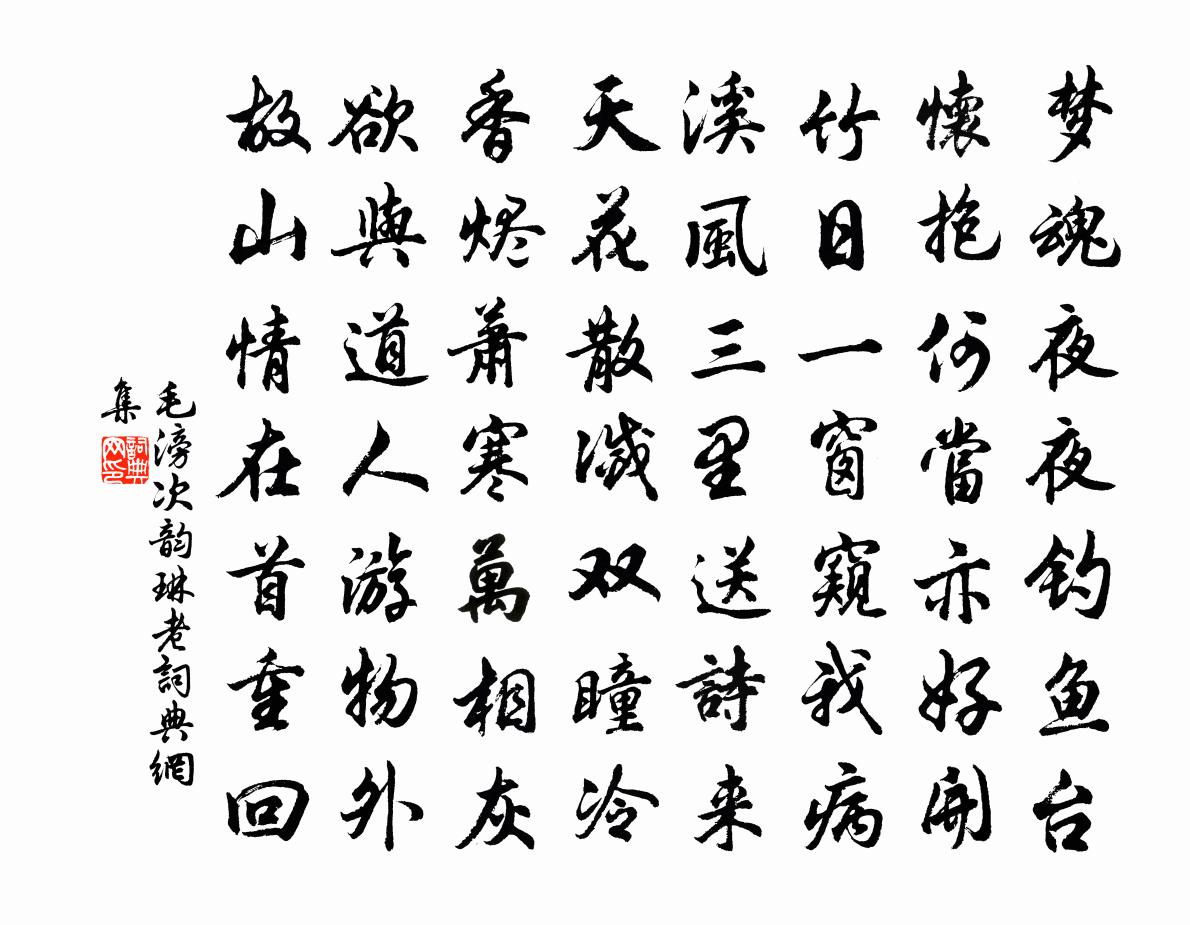 梦魂夜夜钓鱼台
懷抱何當亦好開
竹日一窗窺我病
溪風三里送詩来
天花散滅双瞳冷
香烬萧寒萬相灰
欲與道人游物外
故山情在首重回
毛滂次韵琳老詞典網
集
詞典
网印